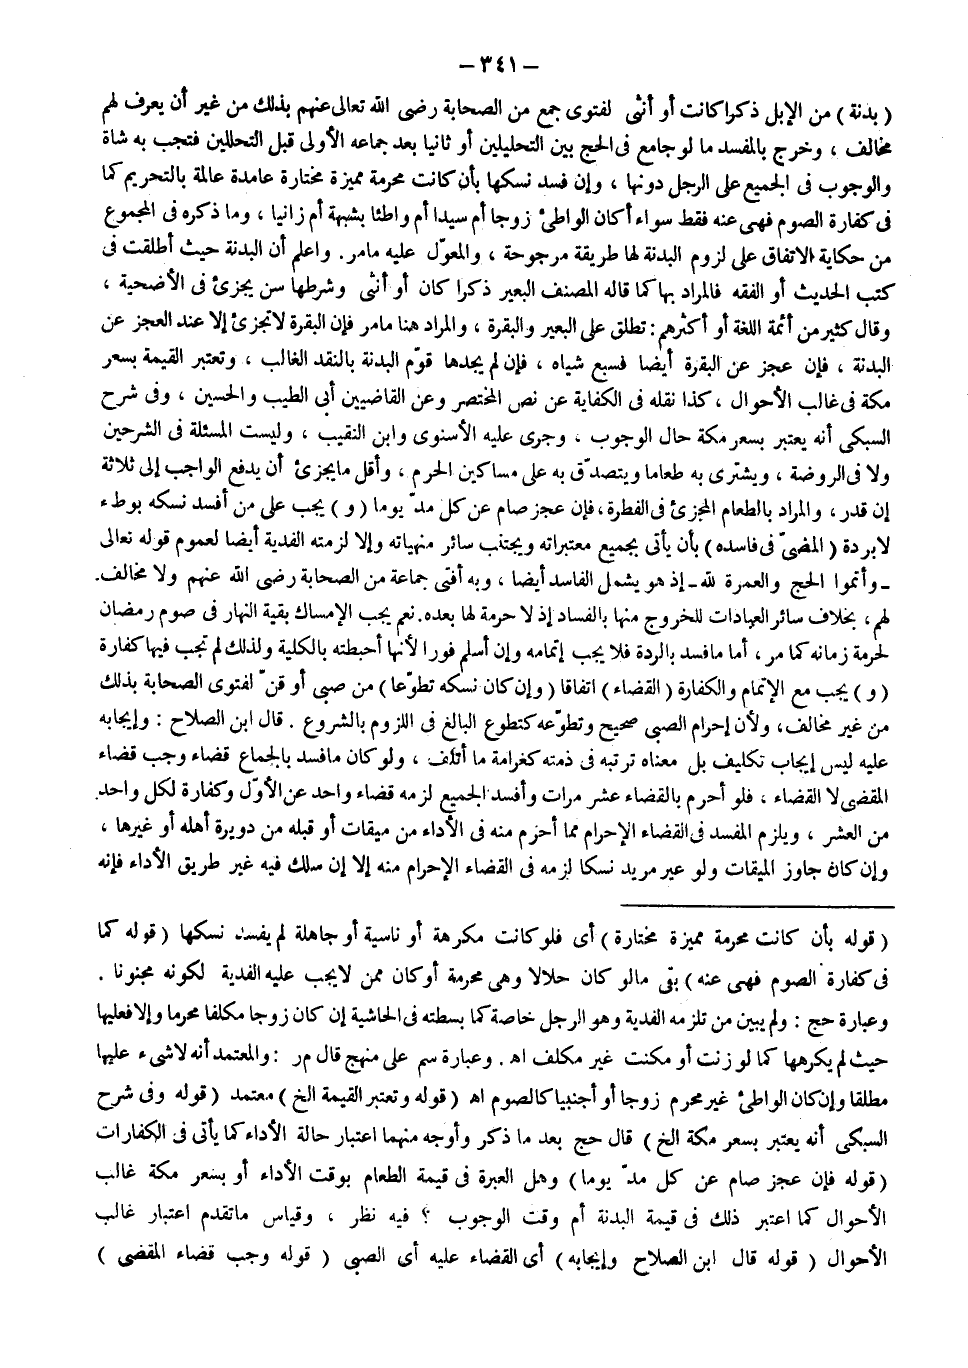 – ٣٤١ –
( بدنة ) من الإبل ذكرا كانت أو أنثى لفتوى جمع من الصحابة رضى الله تعالى عنهم بذلك من غير أن يعرف لهم
مخالف ، وخرج بالمفسد ما لو جامع فى الحج بين التحليلين أو ثانيا بعد جماعه الأولى قبل التحللين فتجب به شاة
والوجوب فى الجميع على الرجل دونها ، وإن فسد نسكها بأن كانت محرمة مميزة مختارة عامدة عالمة بالتحريم كما
فى كفارة الصوم فهى عنه فقط سواء أكان الواطئ زوجا أم سيدا أم واطئا بشبهة أم زانيا ، وما ذكره فى المجموع
من حكاية الاتفاق على لزوم البدنة لها طريقة مرجوحة ، والمعوّل عليه مامر. واعلم أن البدنة حيث أطلقت فى
كتب الحديث أو الفقه فالمراد بها كما قاله المصنف البعير ذكرا كان أو أنثى وشرطها سن يجزئ فى الأضحية ،
وقال كثير من أئمة اللغة أو أكثرهم : تطلق على البعير والبقرة ، والمراد هنا مامر فإن البقرة لا تجزئ إلا عند العجز عن
البدنة ، فإن عجز عن البقرة أيضا فسبع شياه ، فإن لم يجدها قوّم البدنة بالنقد الغالب ، وتعتبر القيمة بسعر
مكة فى غالب الأحوال ، كذا نقله فى الكفاية عن نص المختصر وعن القاضيين أبى الطيب والحسين ، وفى شرح
السبكى أنه يعتبر بسعر مكة حال الوجوب ، وجرى عليه الأسنوى وابن النقيب ، وليست المسئلة فى الشرحين
ولا فى الروضة ، ويشترى به طعاما ويتصدّق به على مساكين الحرم ، وأقل مايجزئ أن يدفع الواجب إلى ثلاثة
إن قدر ، والمراد بالطعام المجزئ فى الفطرة ، فإن عجز صام عن كل مدّ يوما ( و ) يجب على من أفسد نسكه بوطء
لابردة ( المضىّ فى فاسده ) بأن يأتى بجميع معتبراته ويجتنب سائر منهياته وإلا لزمته الفدية أيضا لعموم قوله تعالى
ـ وأتموا الحج والعمرة لله ـ إذ هو يشمل الفاسد أيضا ، وبه أفتى جماعة من الصحابة رضى الله عنهم ولا مخالف.
لهم ، بخلاف سائر العبادات للخروج منها بالفساد إذ لا حرمة لها بعده. نعم يجب الإمساك بقية النهار فى صوم رمضان
لحرمة زمانه كما مر ، أما مافسد بالردة فلا يجب إتمامه وإن أسلم فورا لأنها أحبطته بالكلية ولذلك لم تجب فيها كفارة
( و ) يجب مع الإتمام والكفارة ( القضاء ) اتفاقا ( وإن كان نسكه تطوّعا ) من صبى أو قنّ لفتوى الصحابة بذلك
من غير مخالف، ولأن إحرام الصبى صحيح وتطوّعه كتطوع البالغ فى اللزوم بالشروع . قال ابن الصلاح : وإيجابه
عليه ليس إيجاب تكليف بل معناه ترتبه فى ذمته كغرامة ما أتلف ، ولو كان مافسد بالجماع قضاء وجب قضاء
المقضى لا القضاء ، فلو أحرم بالقضاء عشر مرات وأفسد الجميع لزمه قضاء واحد عن الأوّل وكفارة لكل واحد
من العشر ، ويلزم المفسد فى القضاء الإحرام مما أحرم منه فى الأداء من ميقات أو قبله من دويرة أهله أو غيرها ،
وإن كان جاوز الميقات ولو عير مريد نسكا لزمه فى القضاء الإحرام منه إلا إن سلك فيه غير طريق الأداء فإنه
( قوله بأن كانت محرمة مميزة مختارة ) أى فلو كانت مكرهة أو ناسية أو جاهلة لم يفسد نسكها ( قوله كما
فى كفارة الصوم فهى عنه ) بقى مالو كان حلالا وهى محرمة أو كان ممن لا يجب عليه الفدية لكونه مجنونا .
وعبارة حج : ولم يبين من تلزمه الفدية وهو الرجل خاصة كما بسطته فى الحاشية إن كان زوجا مكلفا محرما وإلا فعليها
حيث لم يكرهها كما لو زنت أو مكنت غير مكلف اه . وعبارة سم على منهج قال م ر : والمعتمد أنه لاشىء عليها
مطلقا وإن كان الواطئ غير محرم زوجا أو أجنبيا كالصوم اه ( قوله وتعتبر القيمة الخ ) معتمد ( قوله وفى شرح
السبكى أنه يعتبر بسعر مكة الخ ) قال حج بعد ما ذكر وأوجه منهما اعتبار حالة الأداء كما يأتى فى الكفارات
( قوله فإن عجز صام عن كل مدّ يوما ) وهل العبرة فى قيمة الطعام بوقت الأداء أو بسعر مكة غالب
الأحوال كما اعتبر ذلك فى قيمة البدنة أم وقت الوجوب ؟ فيه نظر ، وقياس ماتقدم اعتبار غالب
الأحوال ( قوله قال ابن الصلاح وإيجابه ) أى القضاء عليه أى الصبى ( قوله وجب قضاء المقضى )